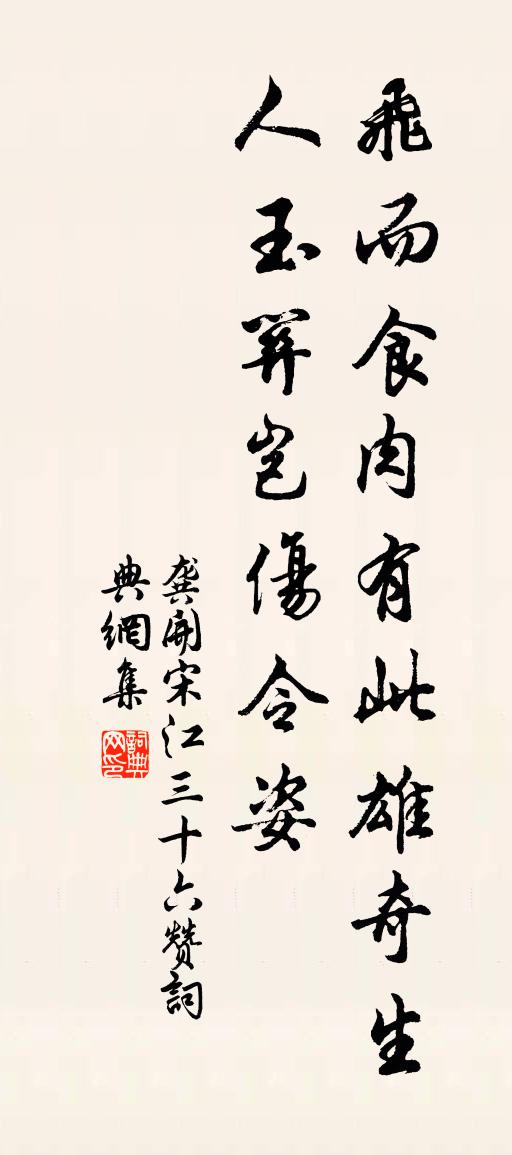 飛而食肉有此雄奇生
人玉關豈傷令姿
龔開宋江三十六贊詞
典網集
詞典
网印